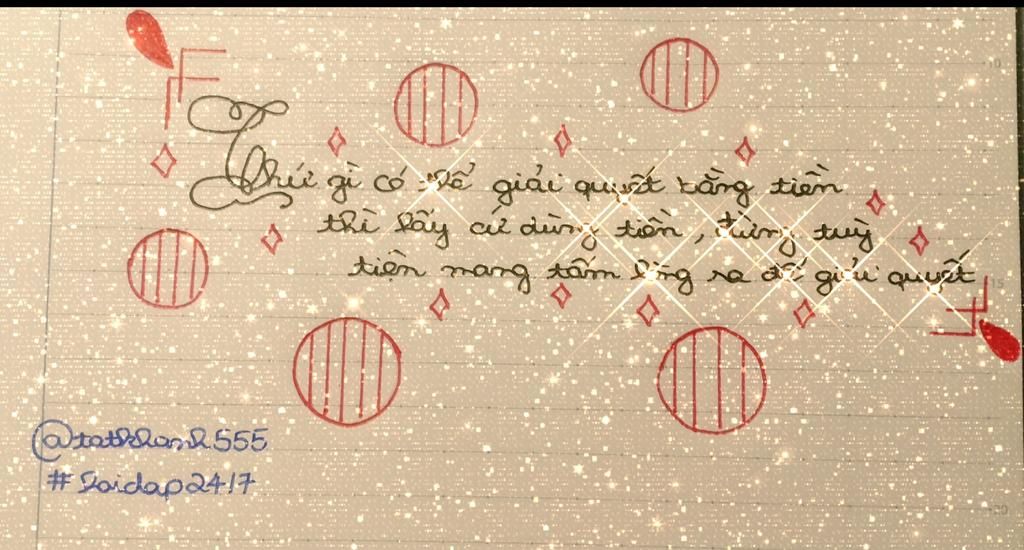 Thứ gì có thể giải quyết bằng tiền
thì hãy cứ dùng tiền, đừng tuỳ
tiện mang tấm lòng ra để giải quyết
@tatkhanh555
#hoidap247